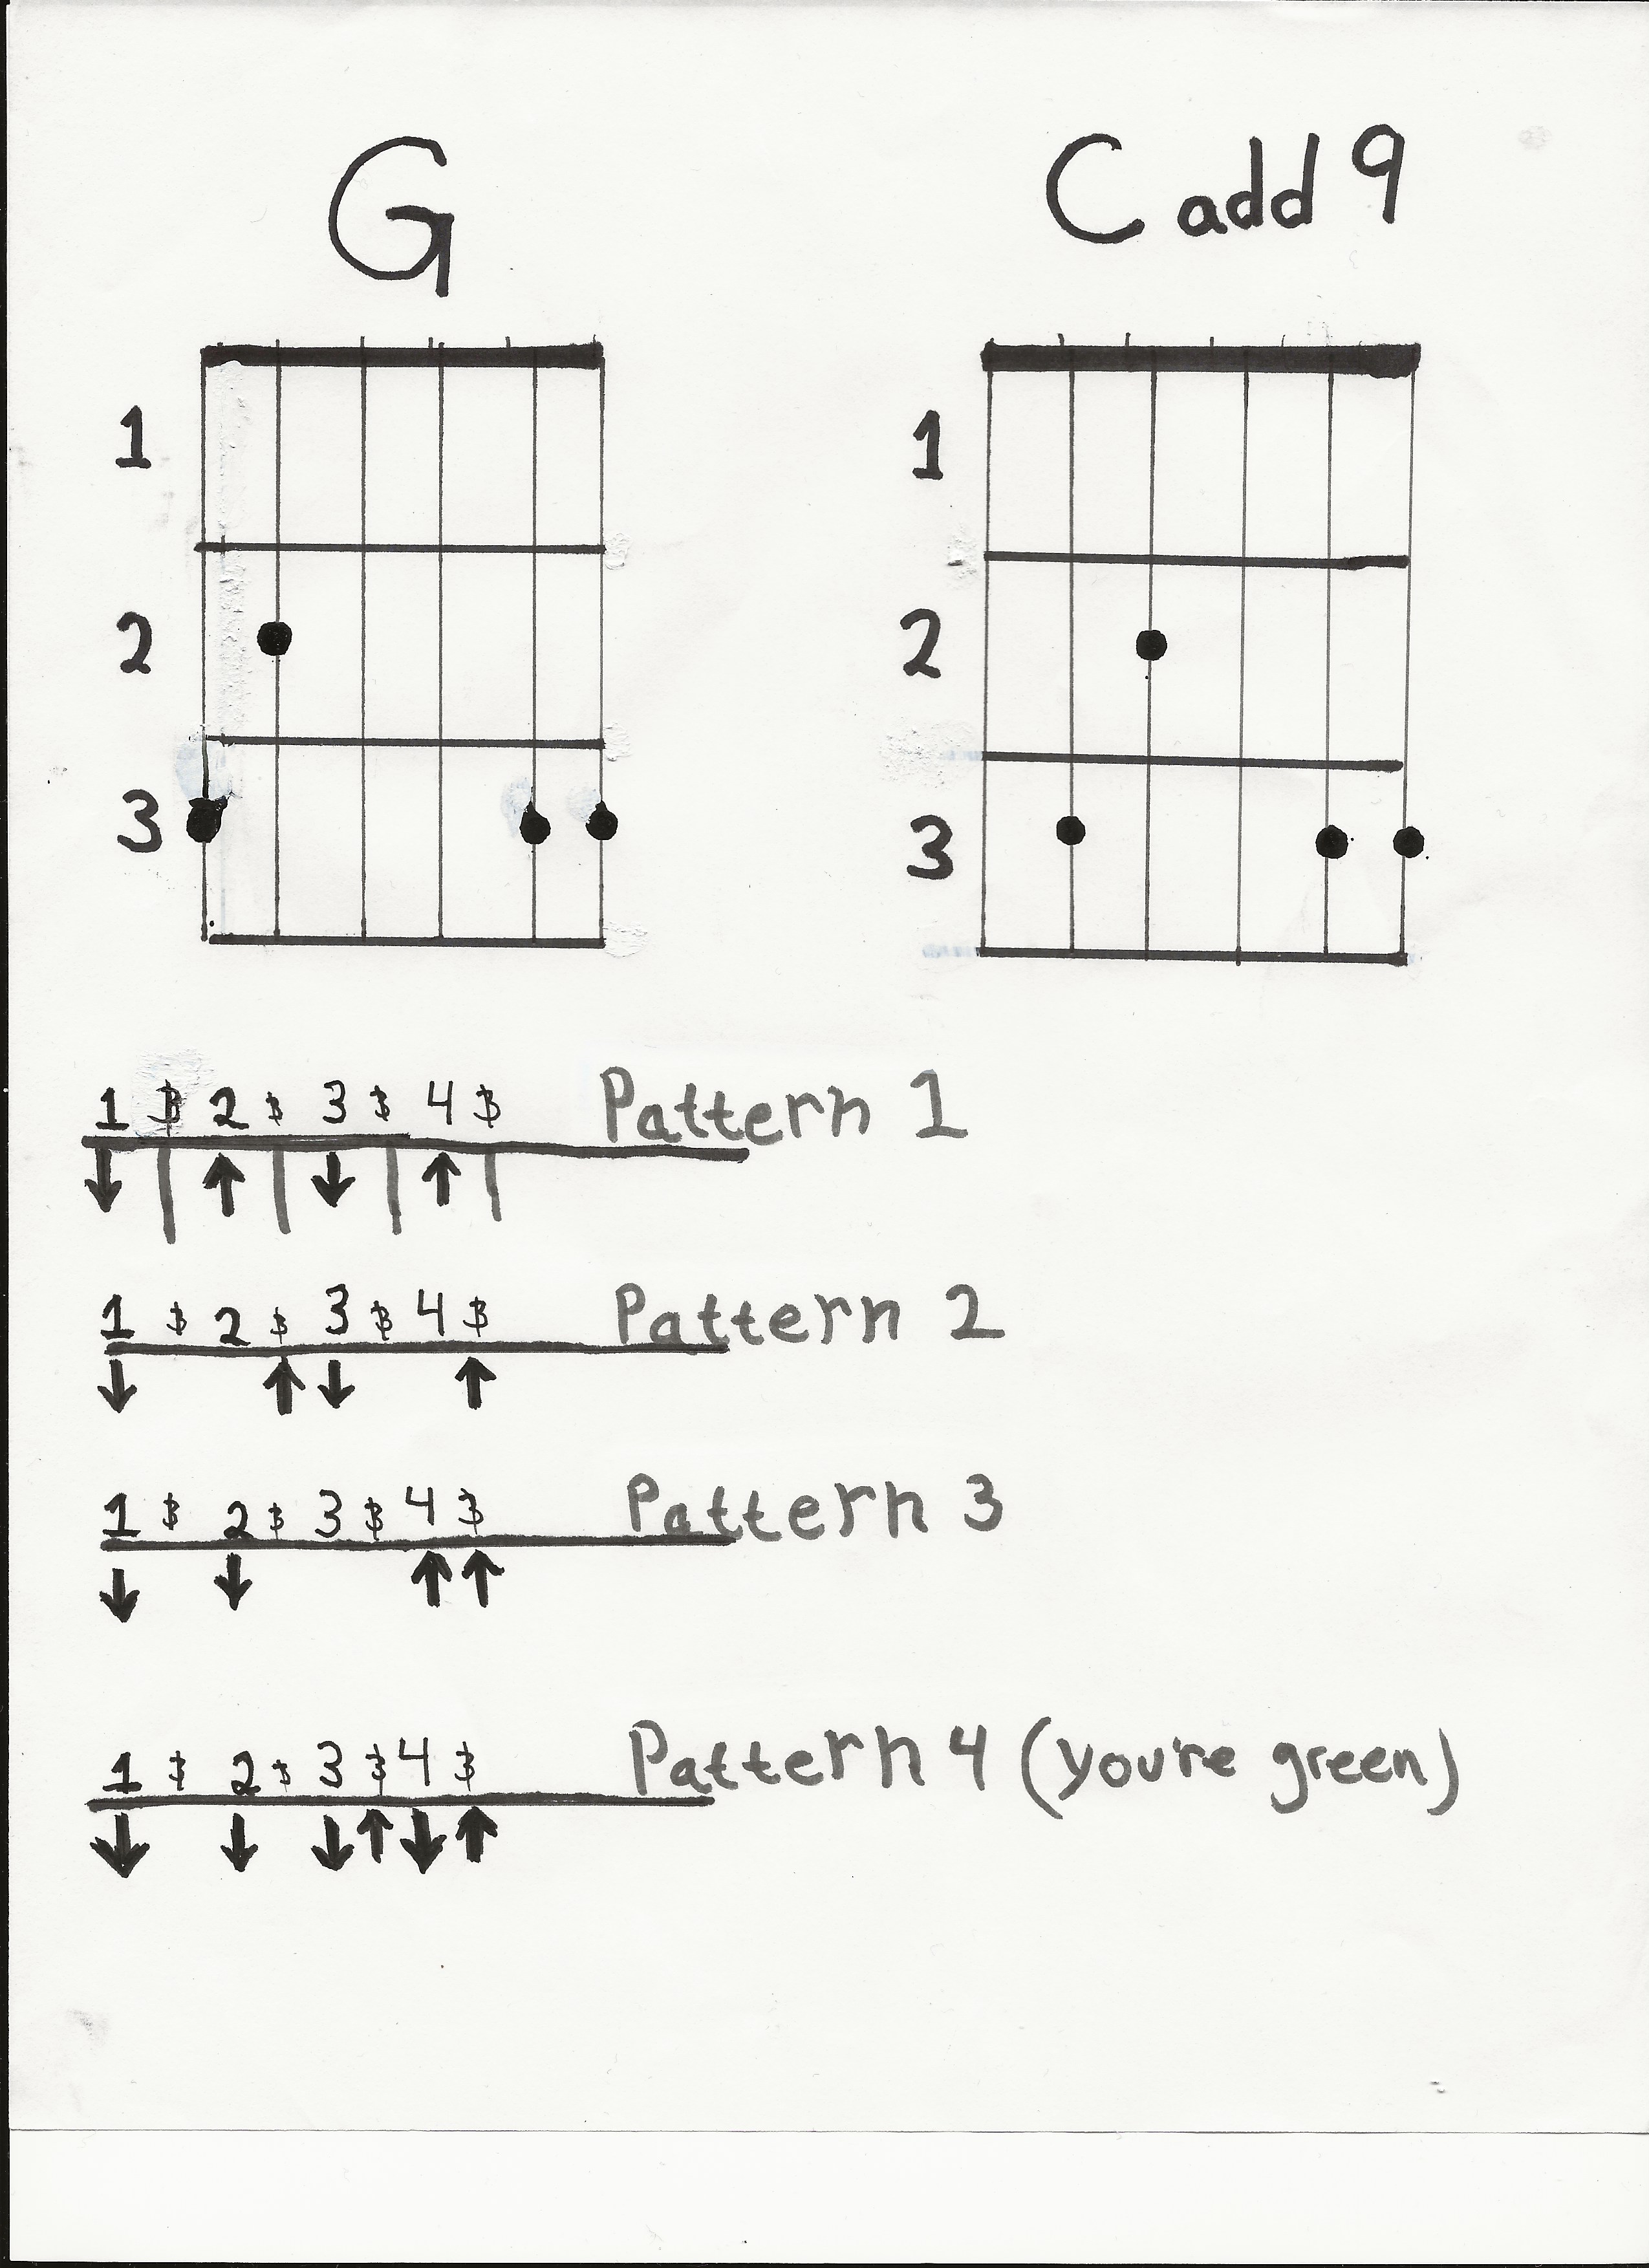 G
C add 9
1
2
3
1
2
3
1 $ 2 $ 3 $ 4 $ Pattern 1
1 $ 2 $ 3 $ 4 $ Pattern 2
1 $ 2 $ 3 $ 4 $ Pattern 3
1 $ 2 $ 3 $ 4 $ Pattern 4 (you're green)